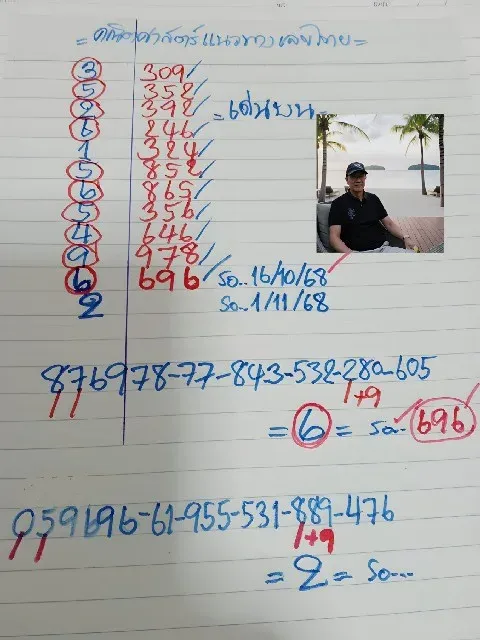 =คณิตศาสตร์แนวทางเลขไทย=
3 309✓
5 352✓
2 392✓ =เด่นบน=
6 246✓
1 324✓
5 852✓
6 865✓
5 356✓
4 646✓
9 978✓
6 696✓ รอ..16/10/68✓
2 รอ..1/11/68
876978-77-843-532-280-605
1+9
=6= รอ..696✓
059696-61-955-531-889-476
1+9
=2= รอ...